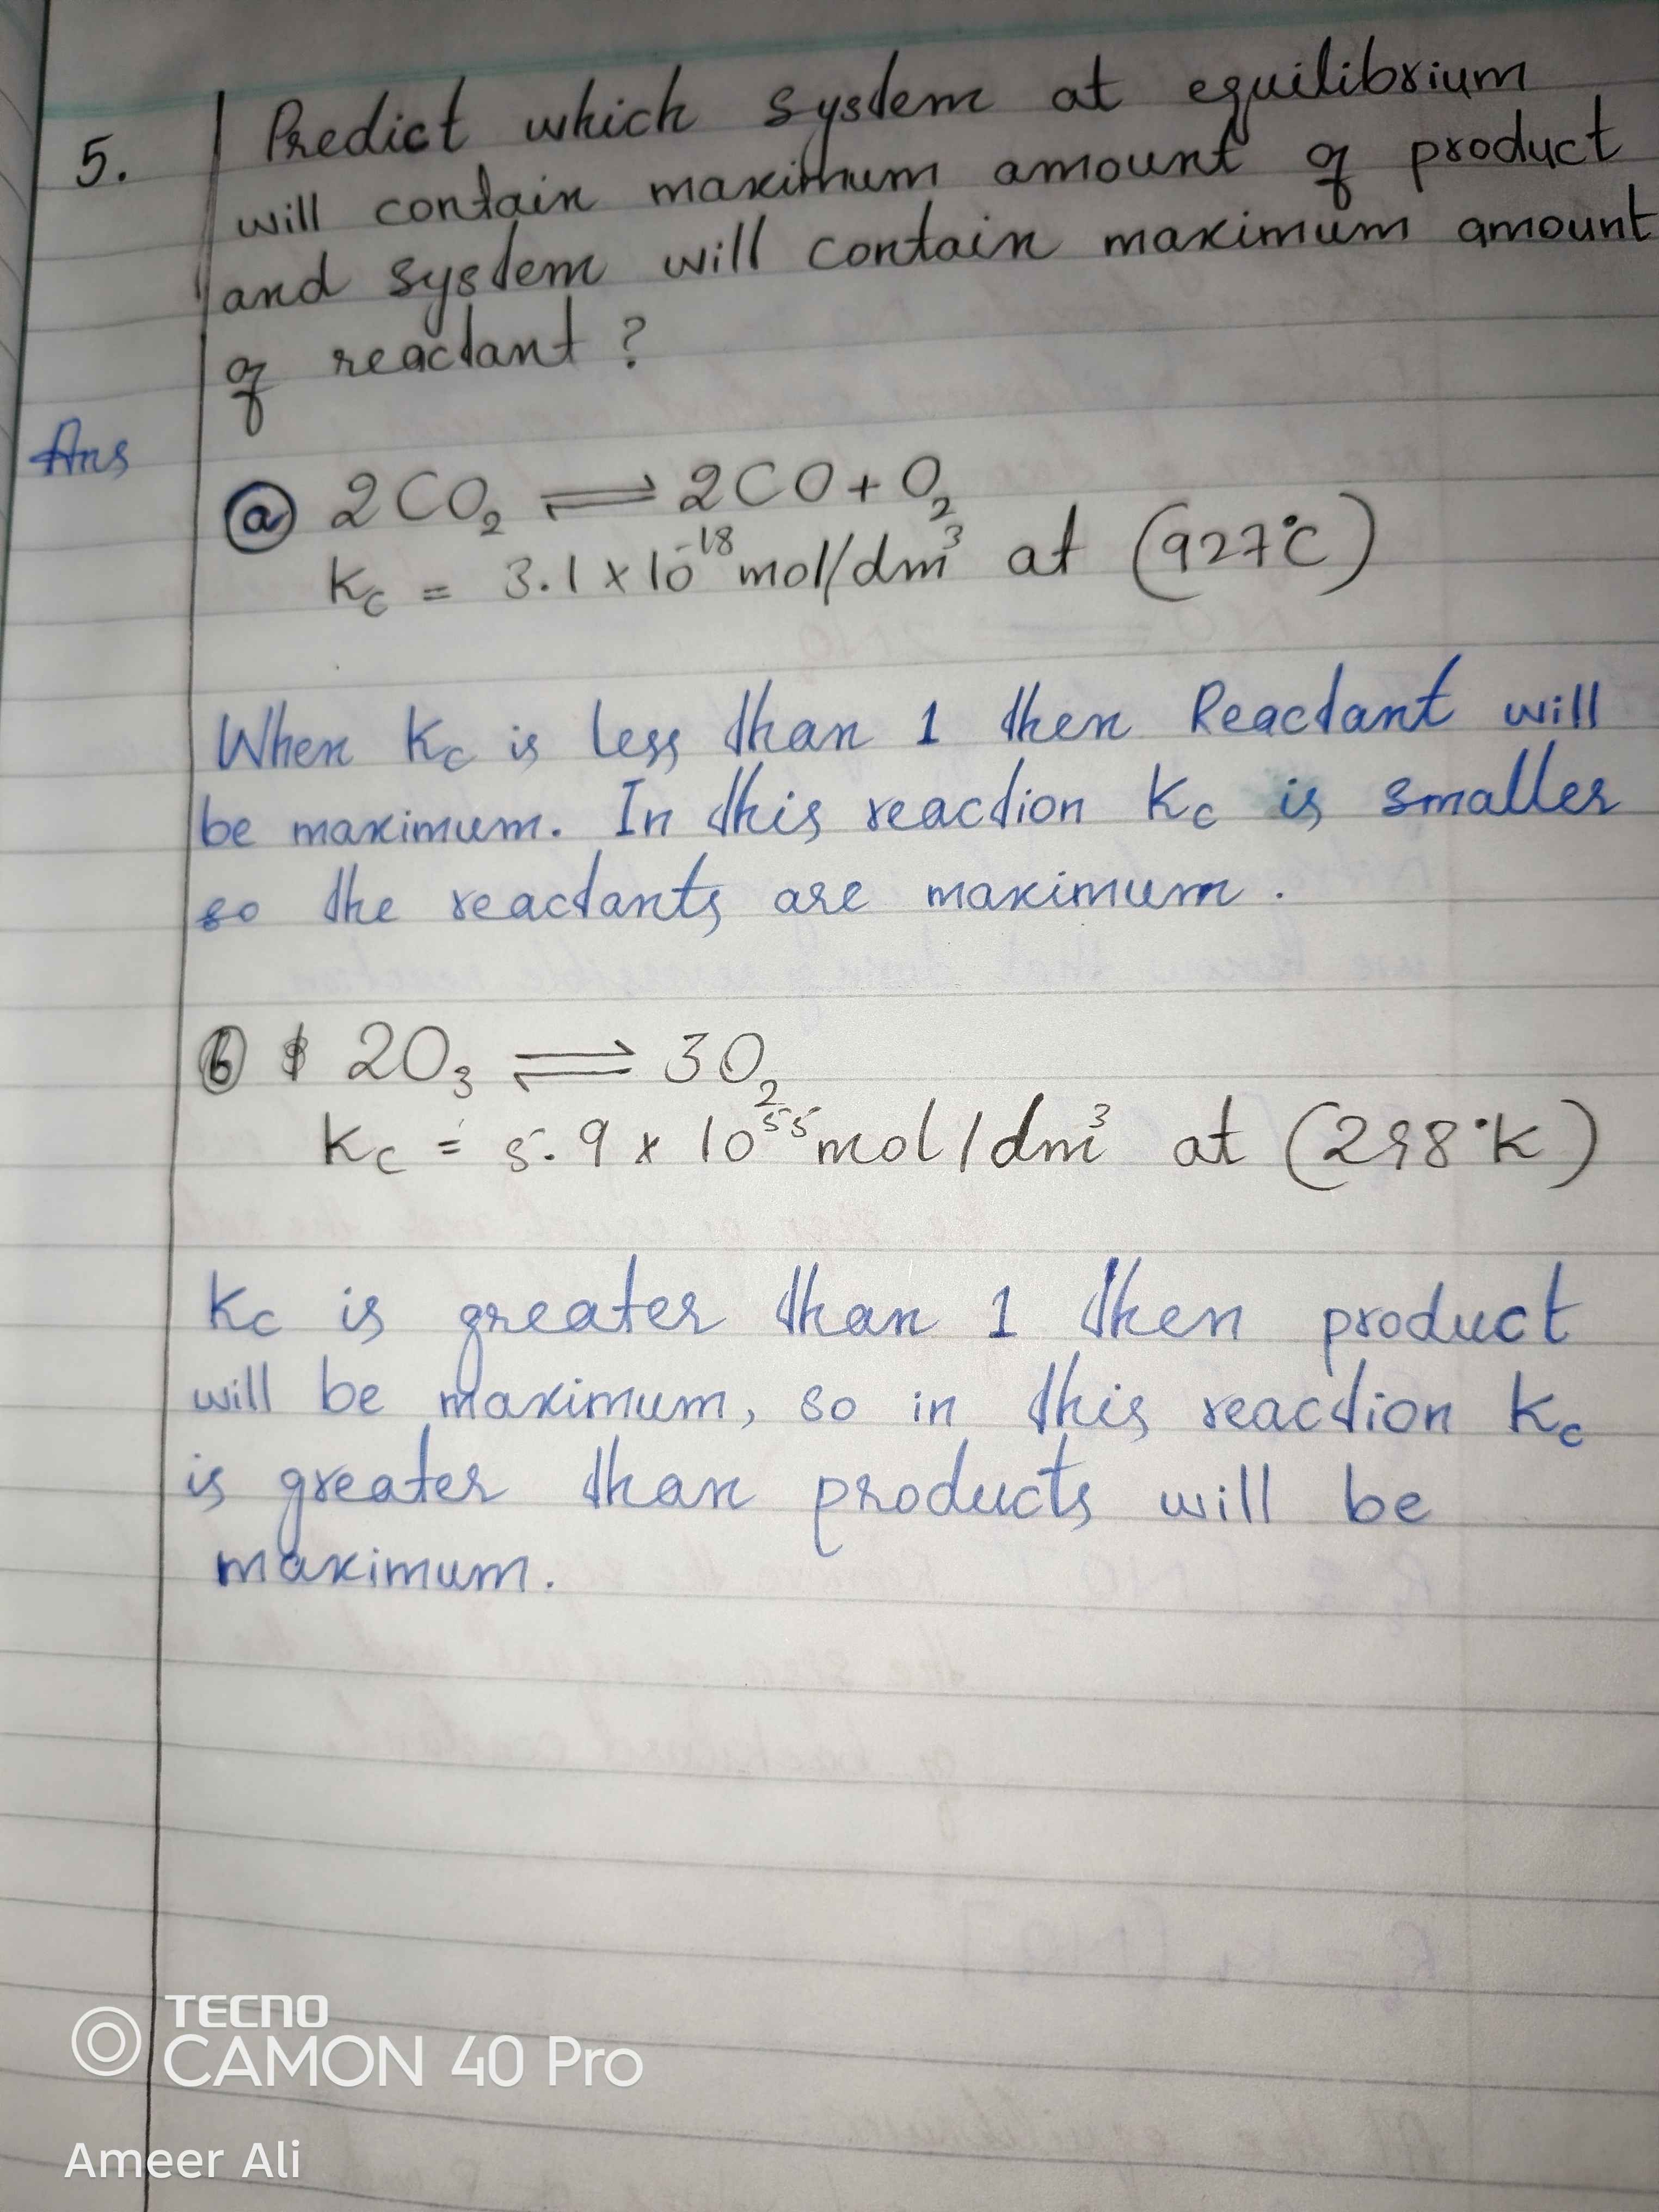 5. Predict which system at equilibrium
will contain maximum amount of product
and system will contain maximum amount
of reactant ?
Ans
ⓐ 2CO₂ ⇌ 2CO + O₂
Kc = 3.1 × 10⁻¹⁸ mol/dm³ at (927°C)
When Kc is less than 1 then Reactant will
be maximum. In this reaction Kc is smaller
so the reactants are maximum.
ⓑ 2O₃ ⇌ 3O₂
Kc = 5.9 × 10⁵⁵ mol/dm³ at (298°K)
Kc is greater than 1 then product
will be maximum, so in this reaction Kc
is greater than products will be
maximum.
TECNO
CAMON 40 Pro
Ameer Ali